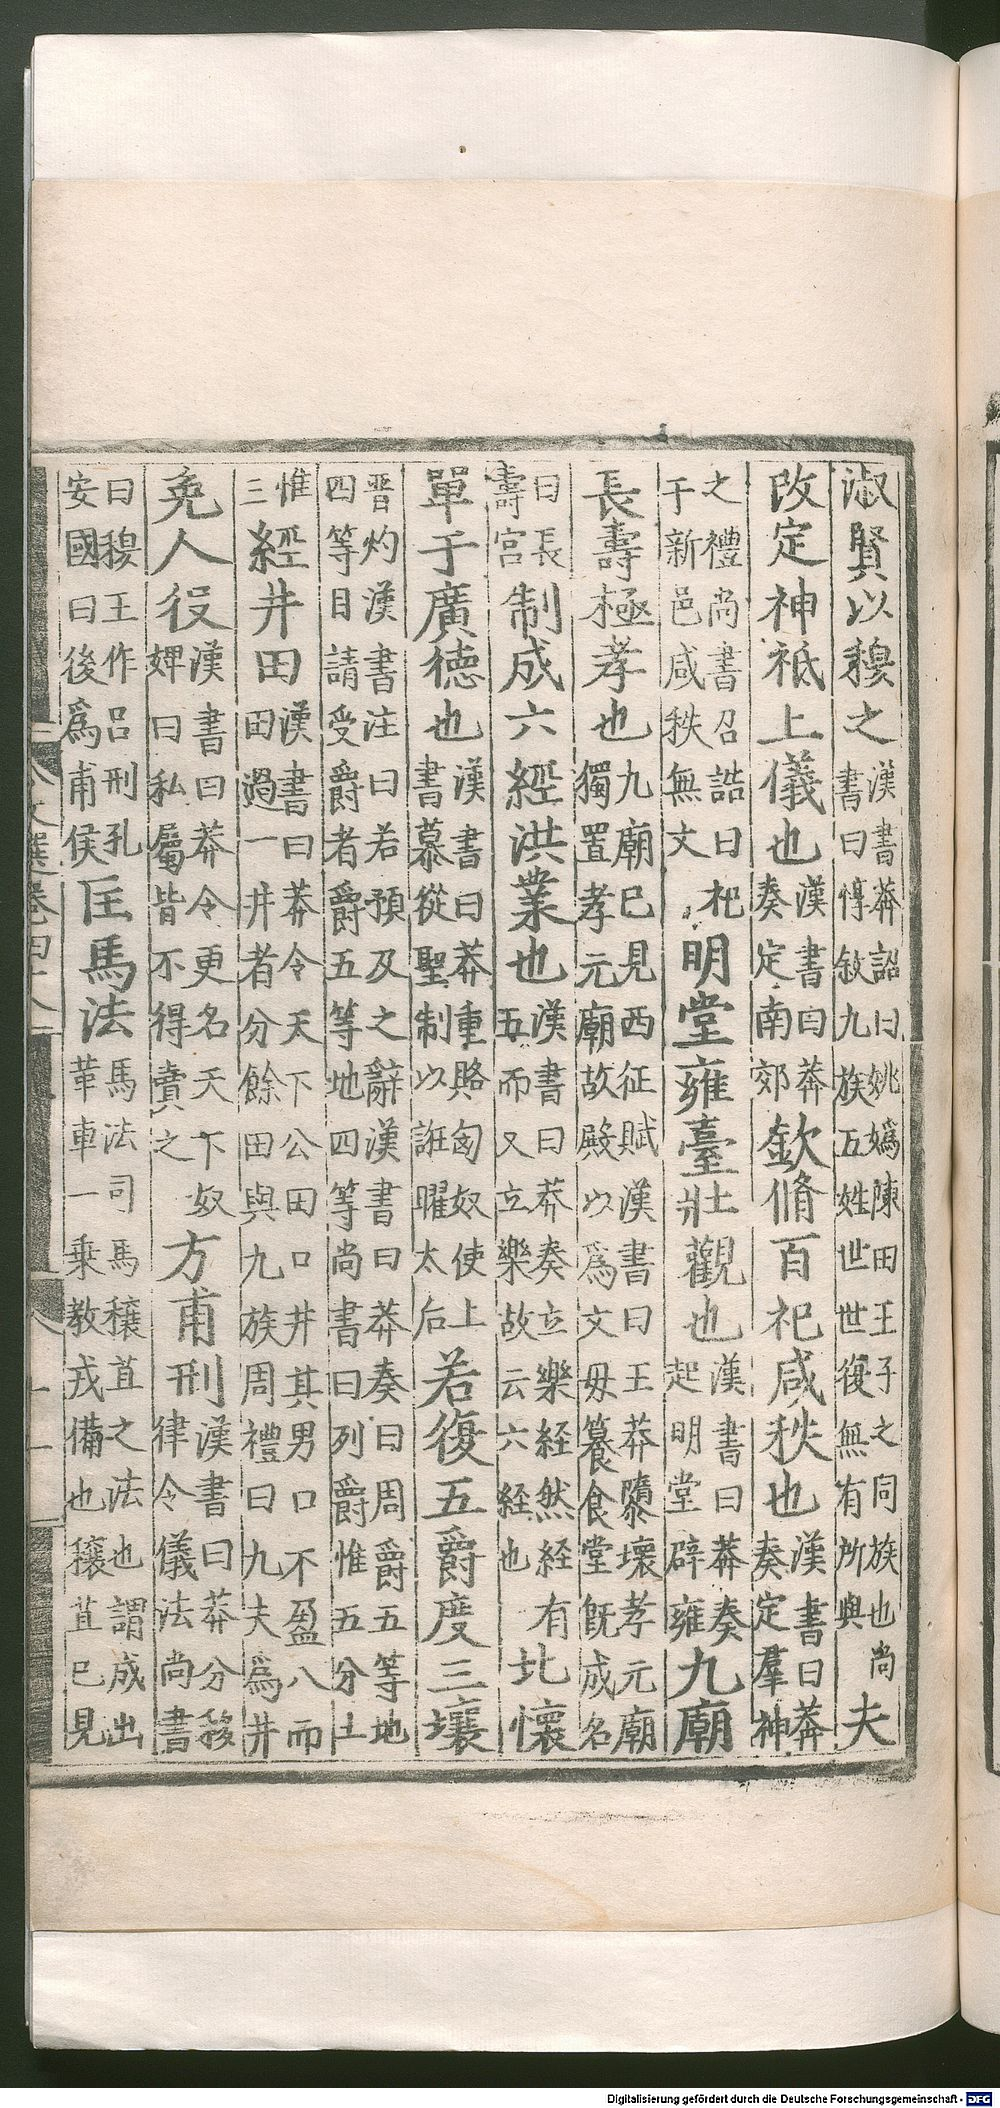 淑賢以穆之漢書莽詔曰姚嬀陳田王子之同族也尚書曰惇敘九族五姓世世復無有所與夫
改定神祗上儀也漢書曰莽奏定南郊欽脩百祀咸秩也漢書曰莽奏定羣神
之禮尚書召誥曰杞于新邑咸秩無文明堂雍臺壯觀也漢書曰莽奏起明堂辟雍九廟
長壽極孝也九廟已見西征賦漢書曰王莽隳壞孝元廟獨置孝元廟故殿以爲文毋篹食堂旣成名
曰長壽宮制成六經洪業也漢書曰莽奏立樂経然経有五而又立樂故云六経也北懷
單于廣德也漢書曰莽重賂匈奴使上書慕從聖制以誑曜太后若復五爵度三壤
晉灼漢書注曰若預及之辭漢書曰莽奏曰周爵五等地四等目請受爵者爵五等地四等尚書曰列爵惟五分土
惟三經井田漢書曰莽令天下公田口井其男口不盈八而田過一井者分餘田與九族周禮曰九夫爲井
免人役漢書曰莽令更名天下奴婢曰私屬皆不得賣之方甫刑漢書曰莽分移律令儀法尚書
曰穆王作呂刑孔安國曰後爲甫侯匡馬法馬法司馬穰苴之法也謂成出革車一乗教戎備也穰苴已見
文選卷四十八
十一
Digitalisierung gefördert durch die Deutsche Forschungsgemeinschaft - DFG